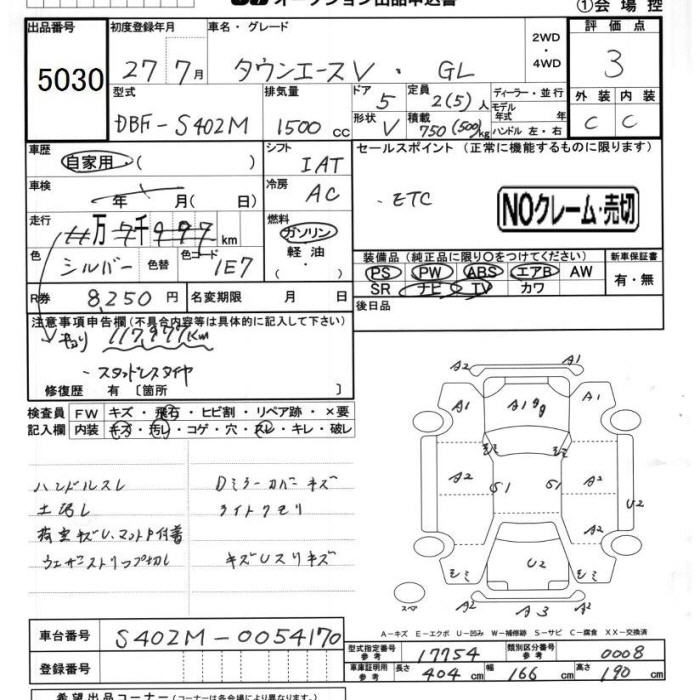 オークション出品申込書
①会場控
出品番号
5030
初度登録年月
27 7月
車名・グレード
タウンエースV・GL
2WD
・
4WD
評価点
3
型式
DBF-S402M
排気量
1500 cc
ドア
5
定員
2(5)人
形状
V
積載
750(500)kg
ディーラー・並行
モデル
年式 年
ハンドル 左・右
外装
C
内装
C
車歴
自家用(　　)
シフト
IAT
セールスポイント(正常に機能するものに限ります)
・ETC
NOクレーム・売切
車検
年 月( 日)
冷房
AC
走行
万 千 km
燃料
ガソリン
軽油
色
シルバー
色替
色コード
1E7
装備品(純正品に限り○をつけてください)
PS PW ABS エアB AW
SR ナビ TV カワ
新車保証書
有・無
R券
8,250円
名変期限 月 日
後日品
注意事項申告欄(不具合内容等は具体的に記入して下さい)
117,977Km
・スタットレスタイヤ
修復歴 有〔箇所 〕
検査員
記入欄
FW キズ・飛石・ヒビ割・リペア跡・×要
内装 キズ・汚レ・コゲ・穴・スレ・キレ・破レ
ハンドルスレ
Dミラーカバーキズ
土汚レ
ライトクモリ
荷室キズU、マットP付着
ウェザストリップ切レ
キズUスリキズ
A2 A1
A1 A1 A1
A2 S1 S1 A2
U2
A2
U2
A1 A3 A2
スペア
A－キズ E－エクボ U－凹み W－補修跡 S－サビ C－腐食 XX－交換済
車台番号
S402M-0054170
登録番号
型式指定番号
参考
17754
類別区分番号
参考
0008
車庫証明用
参考
長さ 404 cm 幅 166 cm 高さ 190 cm
希望出品コーナー(コーナーは各会場により異なります。)